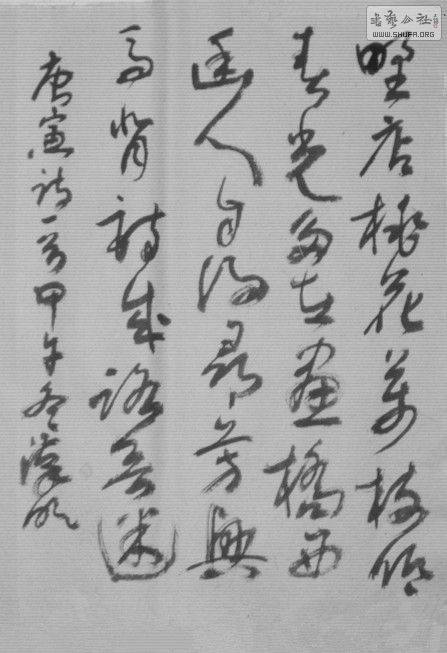 野店桃花萬枝低
春光多在畫橋西
幽人自得尋芳興
馬背詩成路迷
唐寅詩一首甲午冬漢明
書藝公社
WWW.SHUFA.ORG